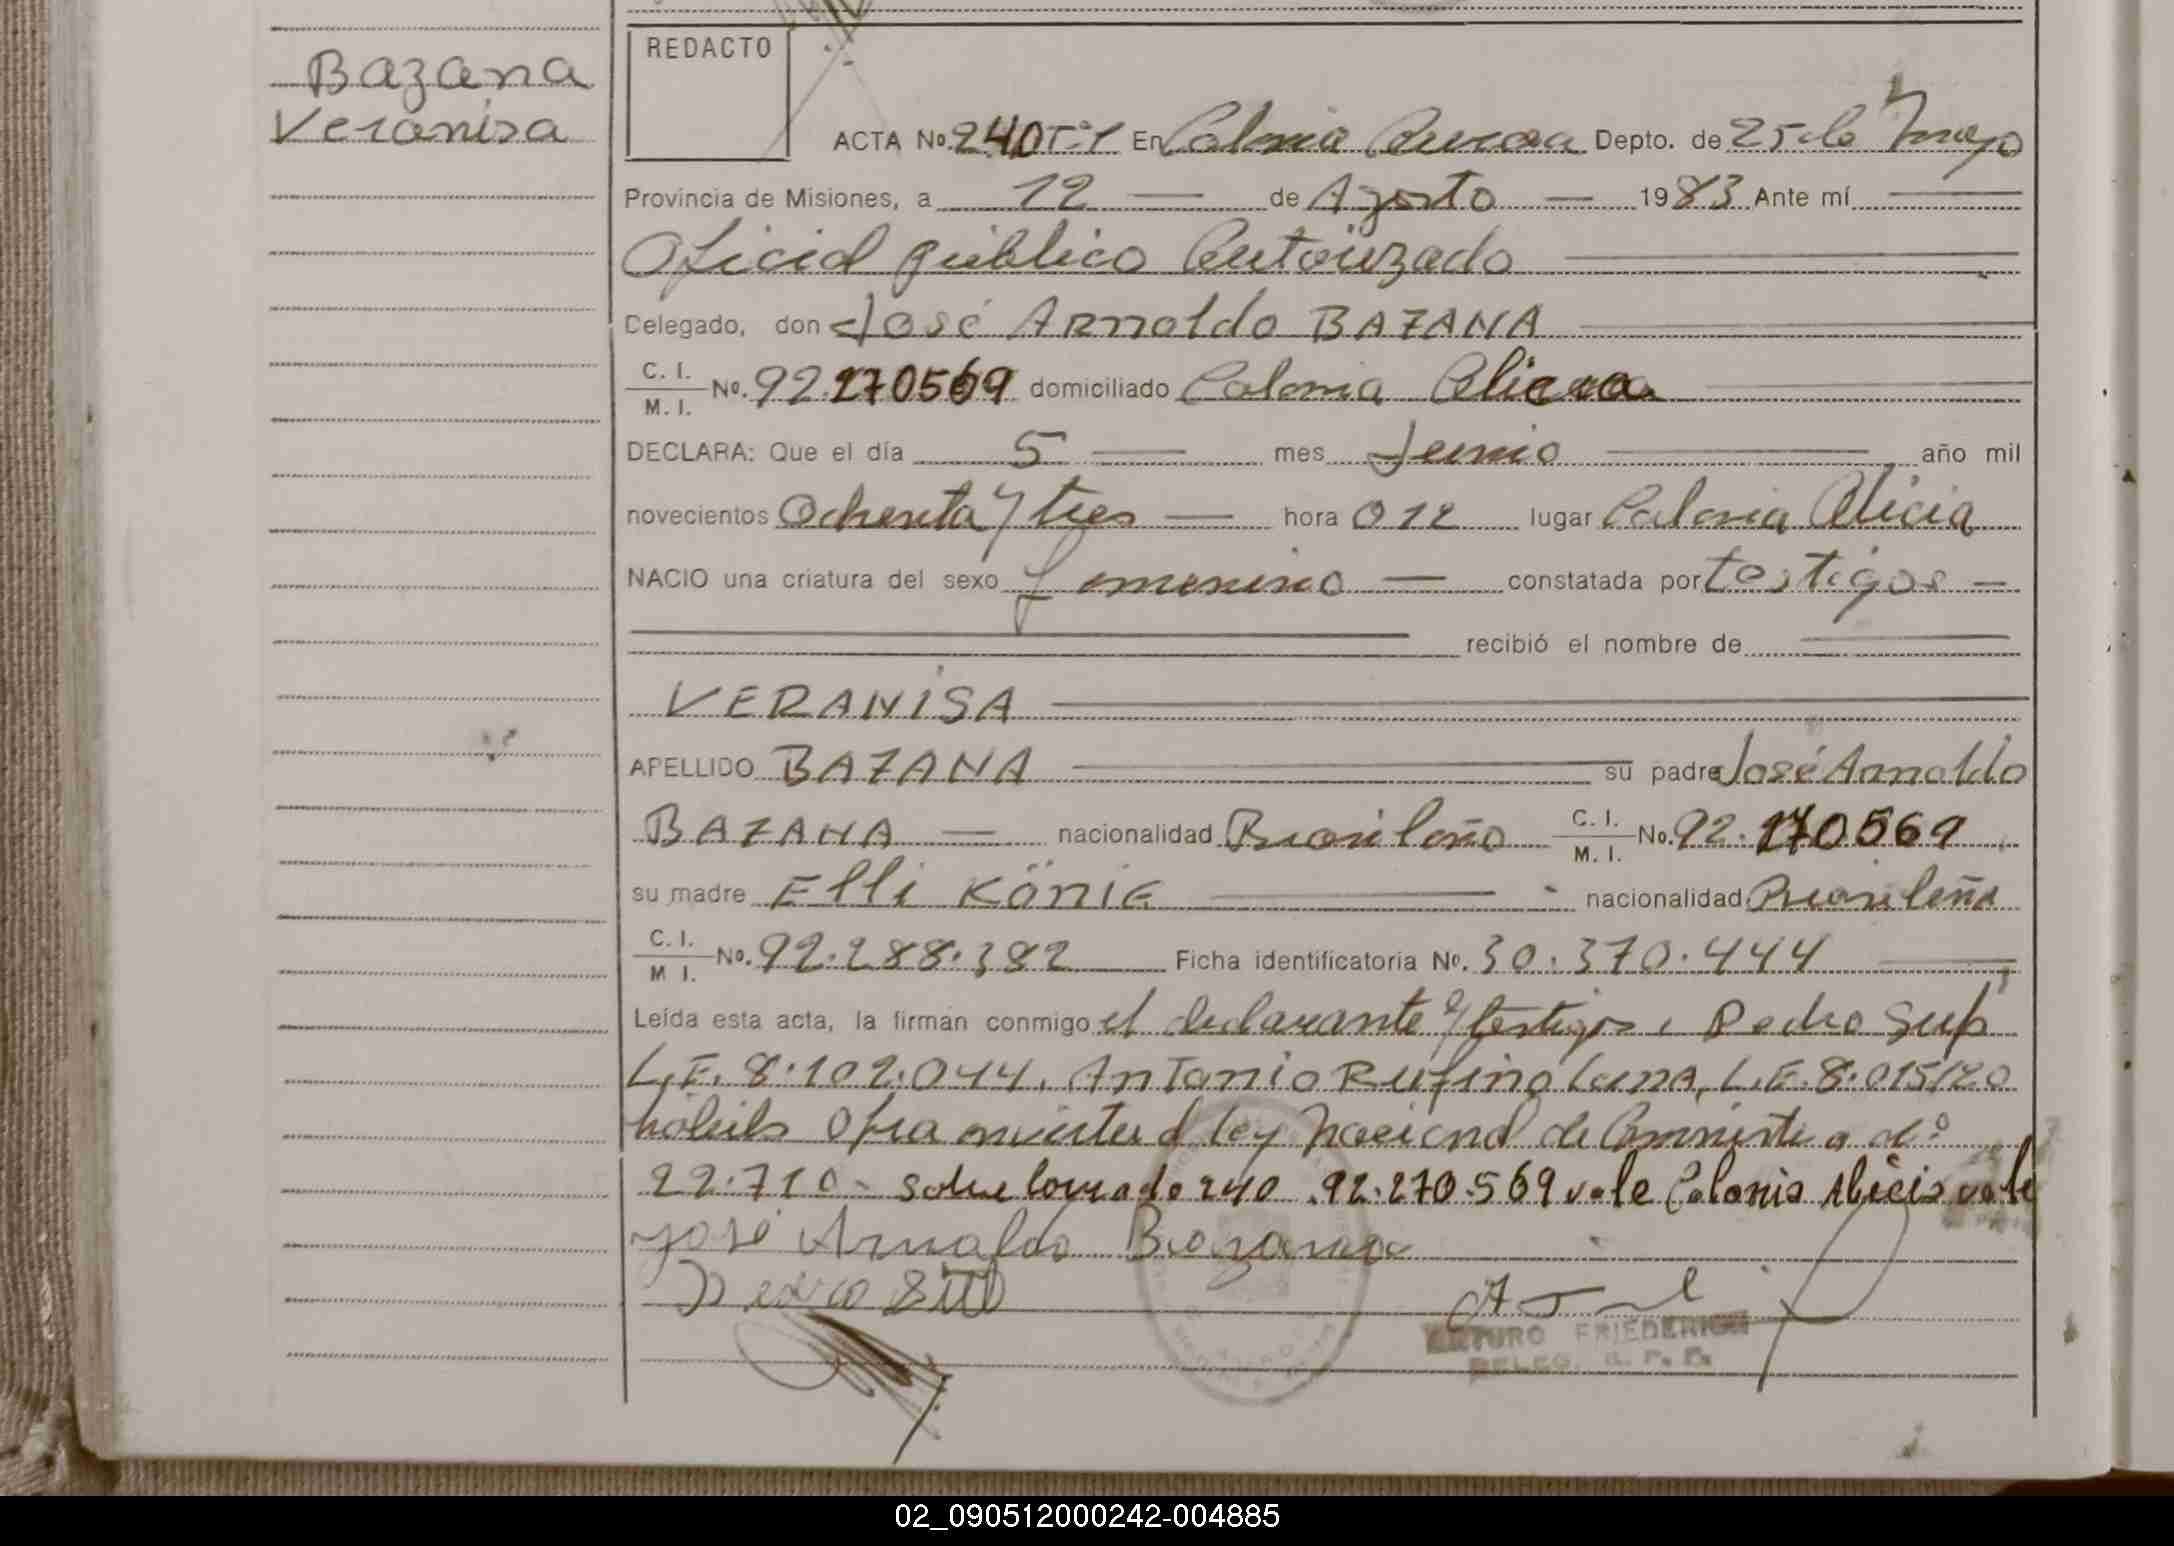 Bazana
Veranisa
REDACTO
ACTA No. 240 Tº1 En Colonia Aurora Depto. de 25 de Mayo
Provincia de Misiones, a 12 — de Agosto — 1983 Ante mí
Oficial público Autorizado
Celegado, don José Arnoldo BAZANA
C. I.
M. I. No. 92.270569 domiciliado Colonia Alicia
DECLARA: Que el día 5 — mes Junio año mil
novecientos Ochenta y tres — hora 012 lugar Colonia Alicia
NACIO una criatura del sexo femenino — constatada por testigos —
recibió el nombre de
VERANISA
APELLIDO BAZANA su padre José Arnoldo
BAZANA — nacionalidad Brasileño C. I. M. I. No. 92.270569
su madre Elli KÖNIG nacionalidad Brasileña
C. I.
M I. No. 92.288.382 Ficha identificatoria No. 30.370.444
Leída esta acta, la firman conmigo el declarante y testigos, Pedro
L.E. 8.102.044, Antonio Rufino Luna, L.E. 8.015120
hábiles ley Nacional de Amnistia
22.710- sobre borrado 240 .92.270.569 vale Colonia Alicia vale
José Arnaldo Bazana
ARTURO FRIEDERICH
DELEG. R. P. P.
02_090512000242-004885